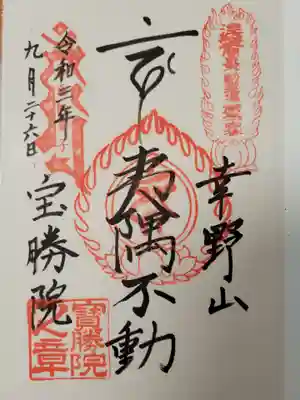 幸野山
夷隅不動
令和二年
九月二十六日
宝勝院
寶勝院
之章